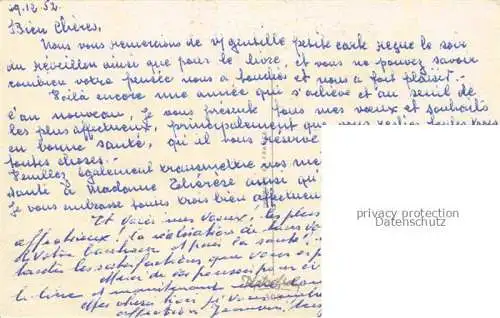 29.12.52
Bien Chères,
Nous vous remercions de v/ gentille petite carte reçue le soir
du Réveillon ainsi que pour le livre, et vous ne pouvez savoir
combien votre pensée nous a touchées et nous a fait plaisir.
Voilà encore une année qui s'achève et au seuil de
l'an nouveau, je vous présente tous mes vœux et souhaits
les plus affectueux, principalement que vous restiez toutes trois
en bonne santé, qu'il vous réserve
toutes choses.
Veuillez également transmettre nos me
santé à Madame Thérèse ainsi qu'
Je vous embrasse toutes trois bien affectueu
Et voici mes vœux, les plus
affectueux, la réalisation de tous vo
de votre bonheur et après la santé,
toutes les satisfactions que vous es p
Merci de vos pensées pour
le livre et maintenant
Mes chéries je vous embr
affection
privacy protection
oldthing